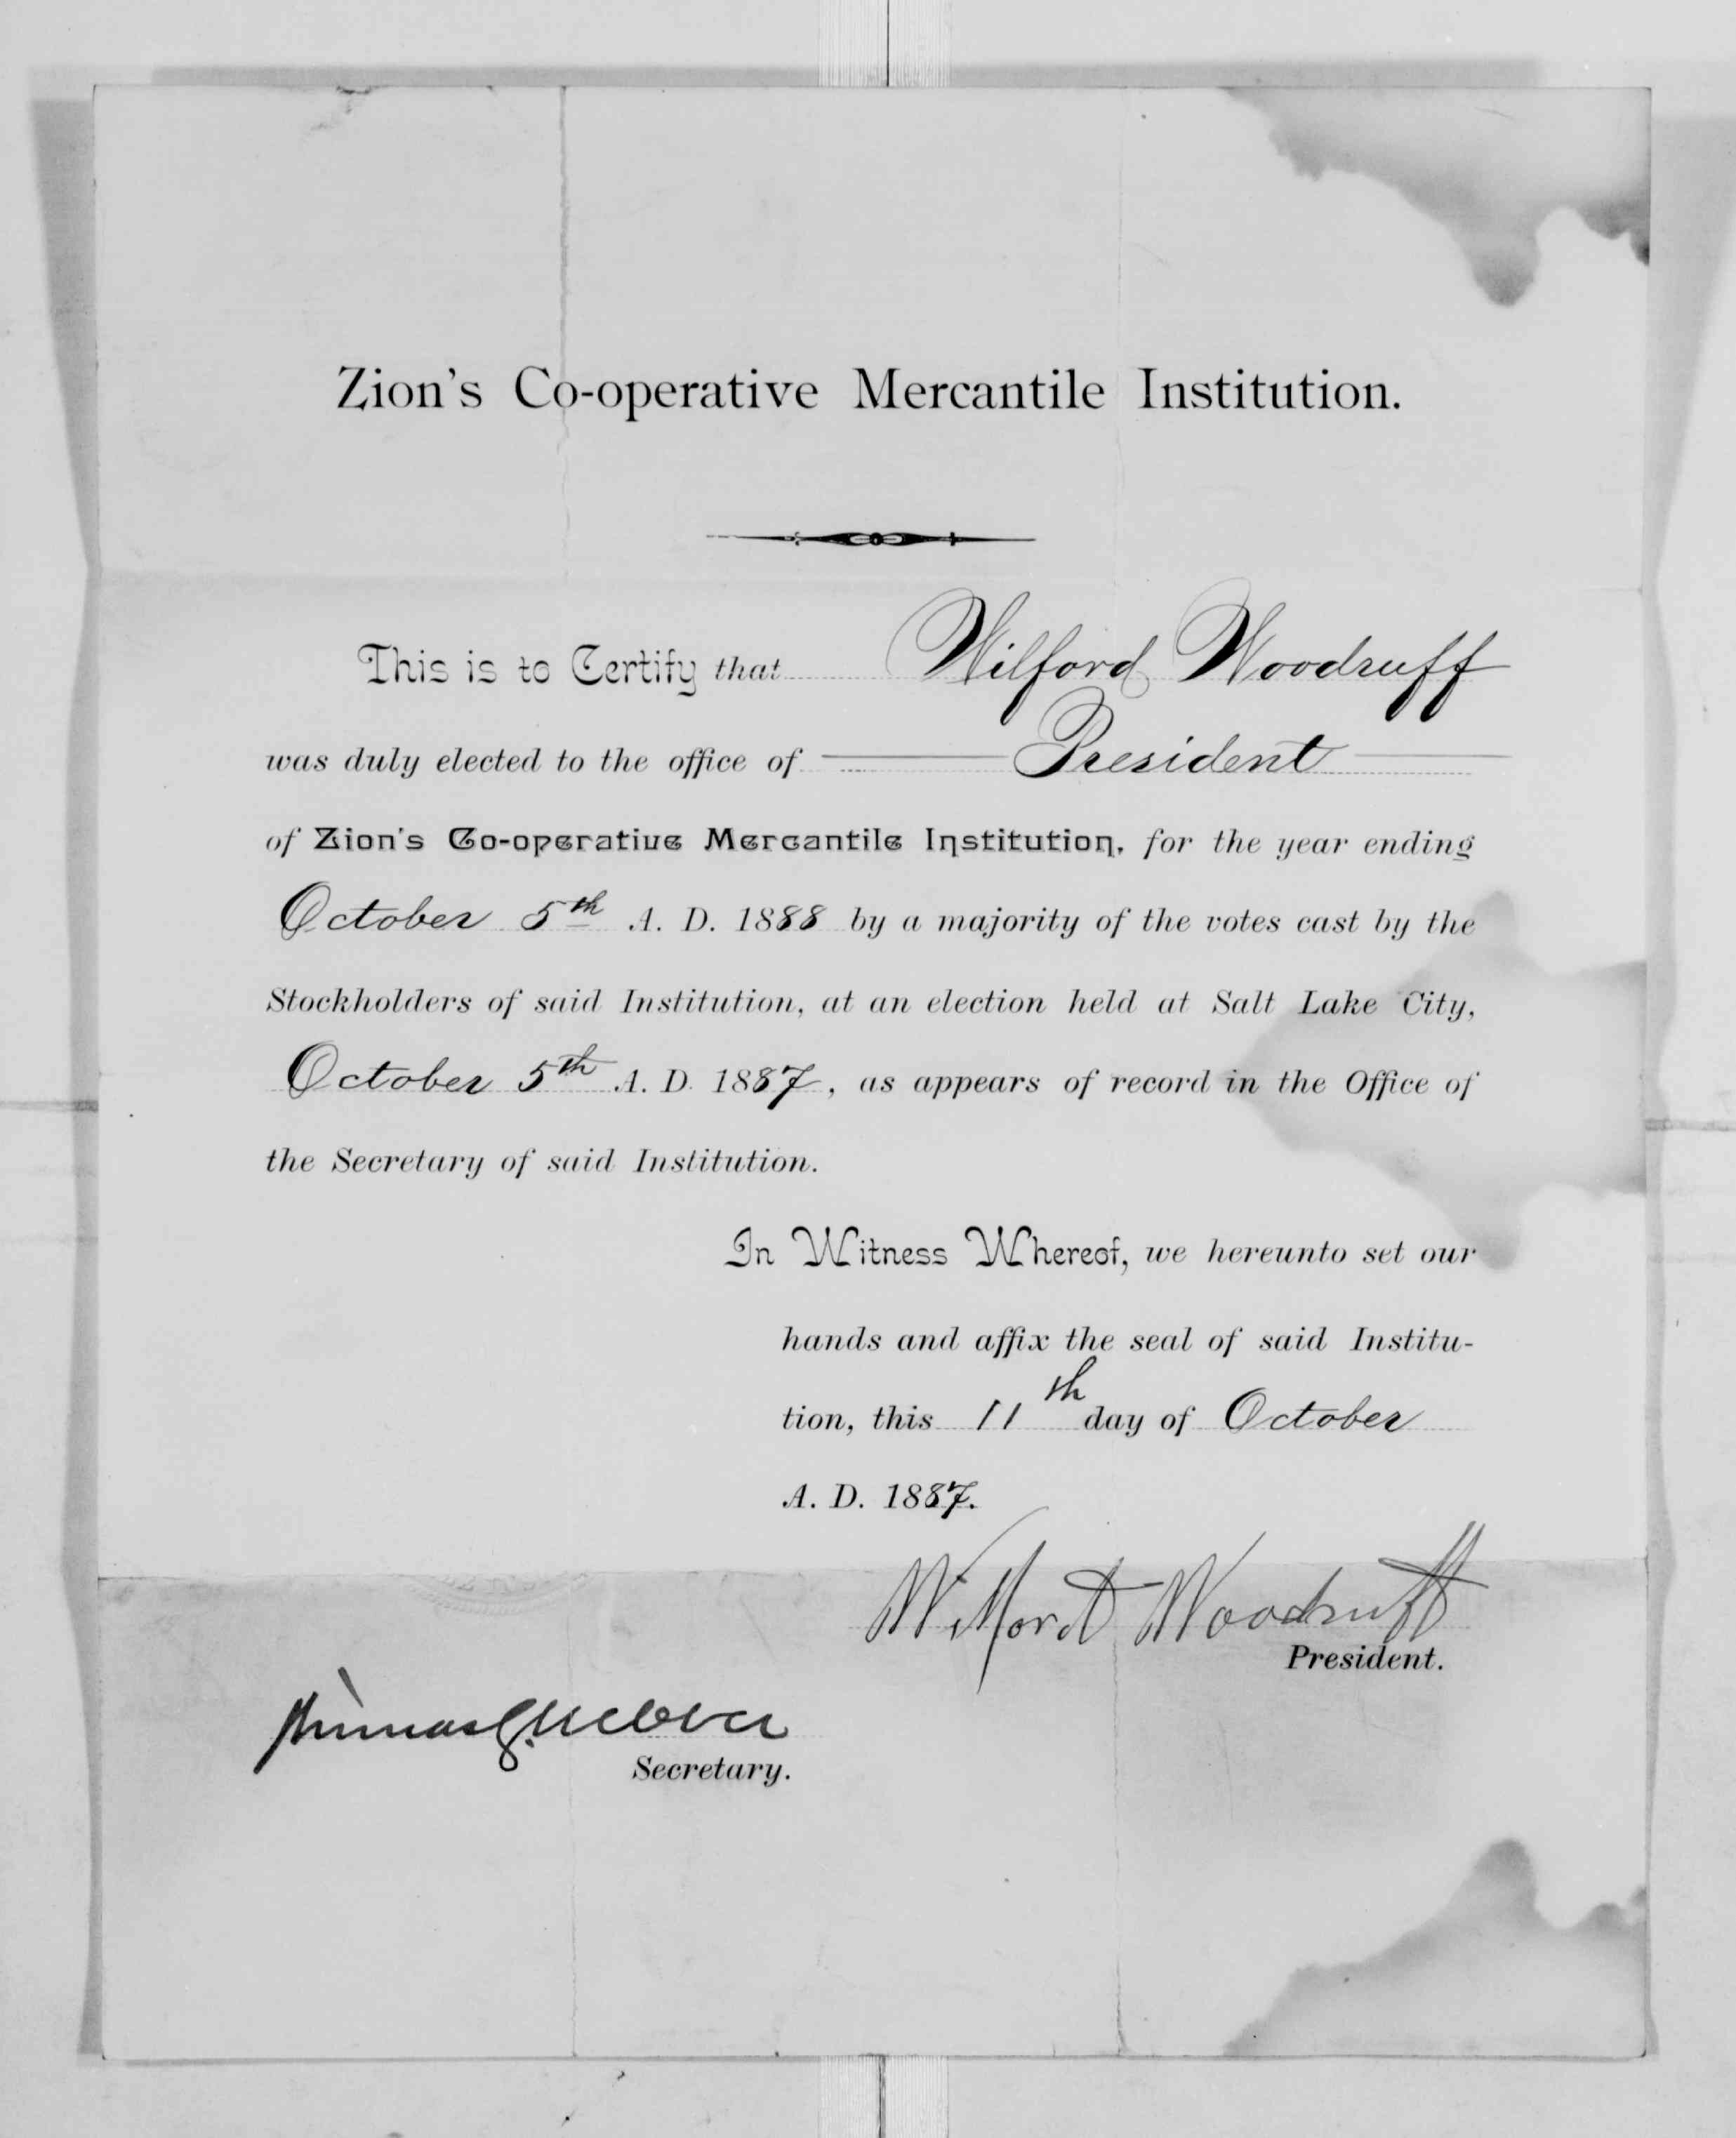 Zion's Co-operative Mercantile Institution.
This is to Certify that Wilford Woodruff
was duly elected to the office of President
of Zion's Co-operative Mercantile Institution, for the year ending
October 5th A. D. 1888 by a majority of the votes cast by the
Stockholders of said Institution, at an election held at Salt Lake City,
October 5th A. D. 1887, as appears of record in the Office of
the Secretary of said Institution.
In Witness Whereof, we hereunto set our
hands and affix the seal of said Institu-
tion, this 11th day of October
A. D. 1887.
Wilford Woodruff
President.
Thomas G. Webber
Secretary.